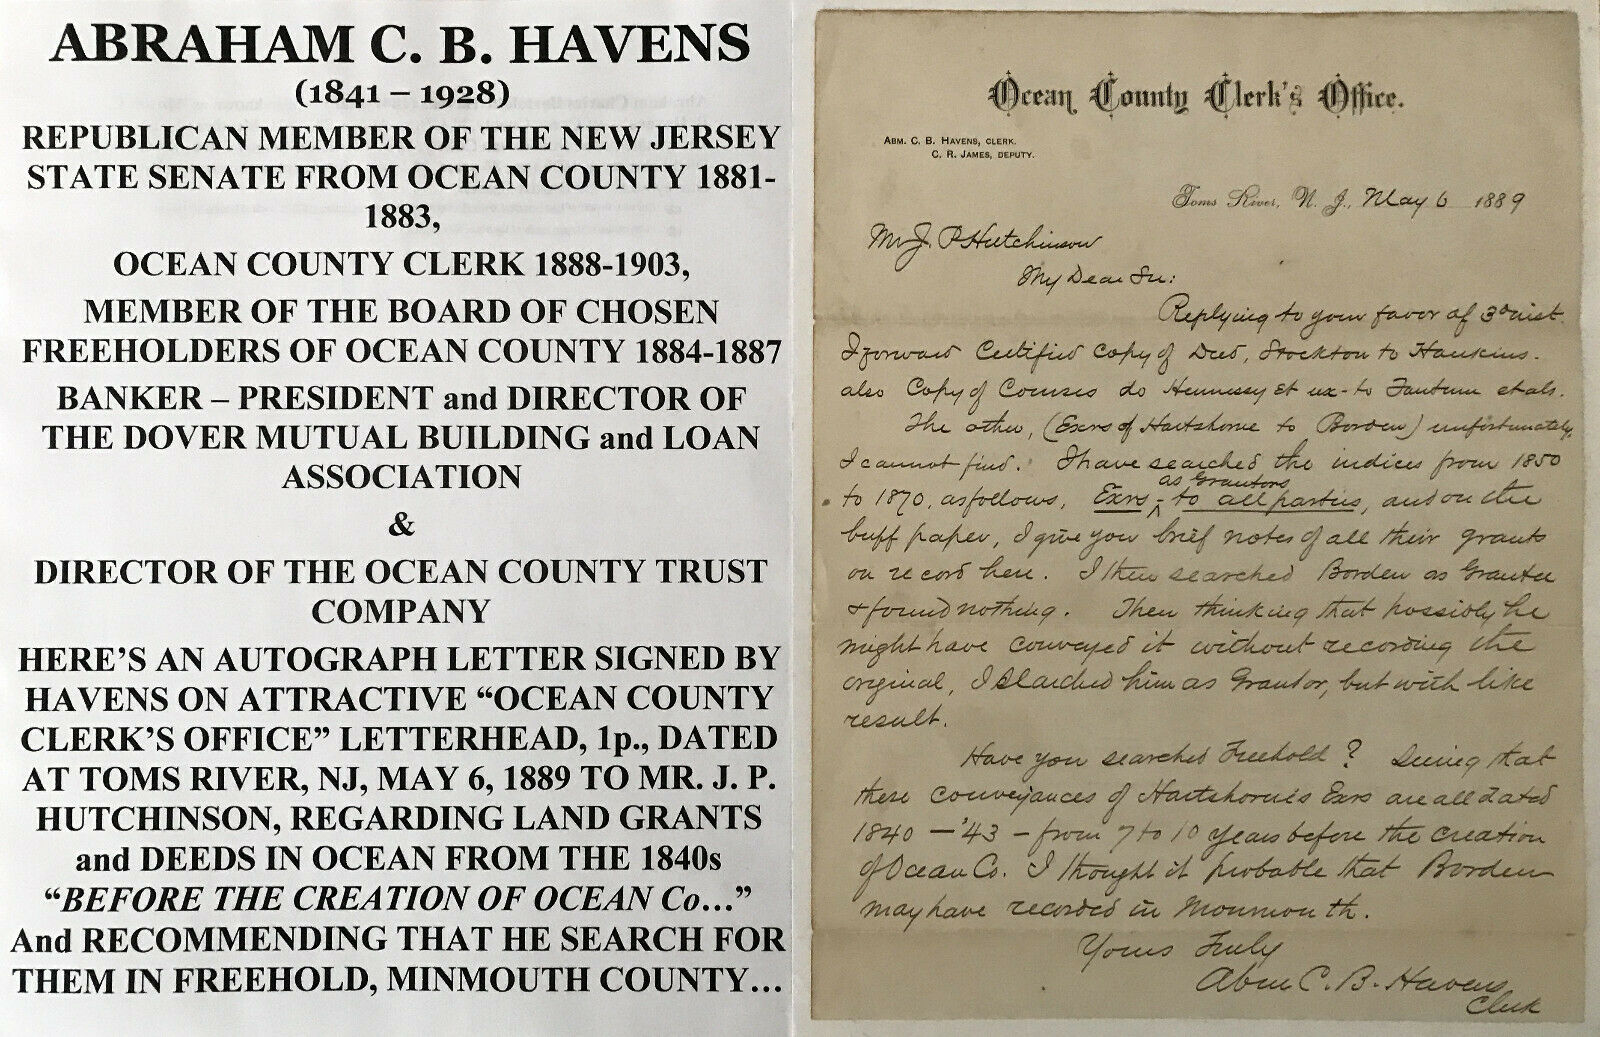 ABRAHAM C. B. HAVENS
(1841 – 1928)
REPUBLICAN MEMBER OF THE NEW JERSEY
STATE SENATE FROM OCEAN COUNTY 1881-
1883,
OCEAN COUNTY CLERK 1888-1903,
MEMBER OF THE BOARD OF CHOSEN
FREEHOLDERS OF OCEAN COUNTY 1884-1887
BANKER – PRESIDENT and DIRECTOR OF
THE DOVER MUTUAL BUILDING and LOAN
ASSOCIATION
&
DIRECTOR OF THE OCEAN COUNTY TRUST
COMPANY
HERE'S AN AUTOGRAPH LETTER SIGNED BY
HAVENS ON ATTRACTIVE “OCEAN COUNTY
CLERK'S OFFICE” LETTERHEAD, 1p., DATED
AT TOMS RIVER, NJ, MAY 6, 1889 TO MR. J. P.
HUTCHINSON, REGARDING LAND GRANTS
and DEEDS IN OCEAN FROM THE 1840s
“BEFORE THE CREATION OF OCEAN Co…”
And RECOMMENDING THAT HE SEARCH FOR
THEM IN FREEHOLD, MINMOUTH COUNTY…
Ocean County Clerk's Office.
ABM. C. B. HAVENS, CLERK.
C. R. JAMES, DEPUTY.
Toms River, N. J., May 6 1889
Mr J. P. Hutchinson
My Dear Sir:
Replying to your favor of 3d inst.
I forward Certified Copy of Deed, Stockton to Hankins.
also Copy of Courses do Hennessy et ux - to et als.
The other, (Exrs of Hartshorne to Borden) unfortunately,
I cannot find. I have searched the indices from 1850
as Grantors
to 1870, as follows, Exrs - to all parties, and on the
buff paper, I give you brief notes of all their grants
on record here. I then searched Borden as Grantee
& found nothing. Then thinking that possibly he
might have conveyed it without recording the
original, I searched him as Grantor, but with like
result.
Have you searched Freehold? Seeing that
these conveyances of Hartshorne's Exrs are all dated
1840 – '43 – from 7 to 10 years before the creation
of Ocean Co. I thought it probable that Borden
may have recorded in Monmouth.
Yours Truly
Abm C. B. Havens
Clerk